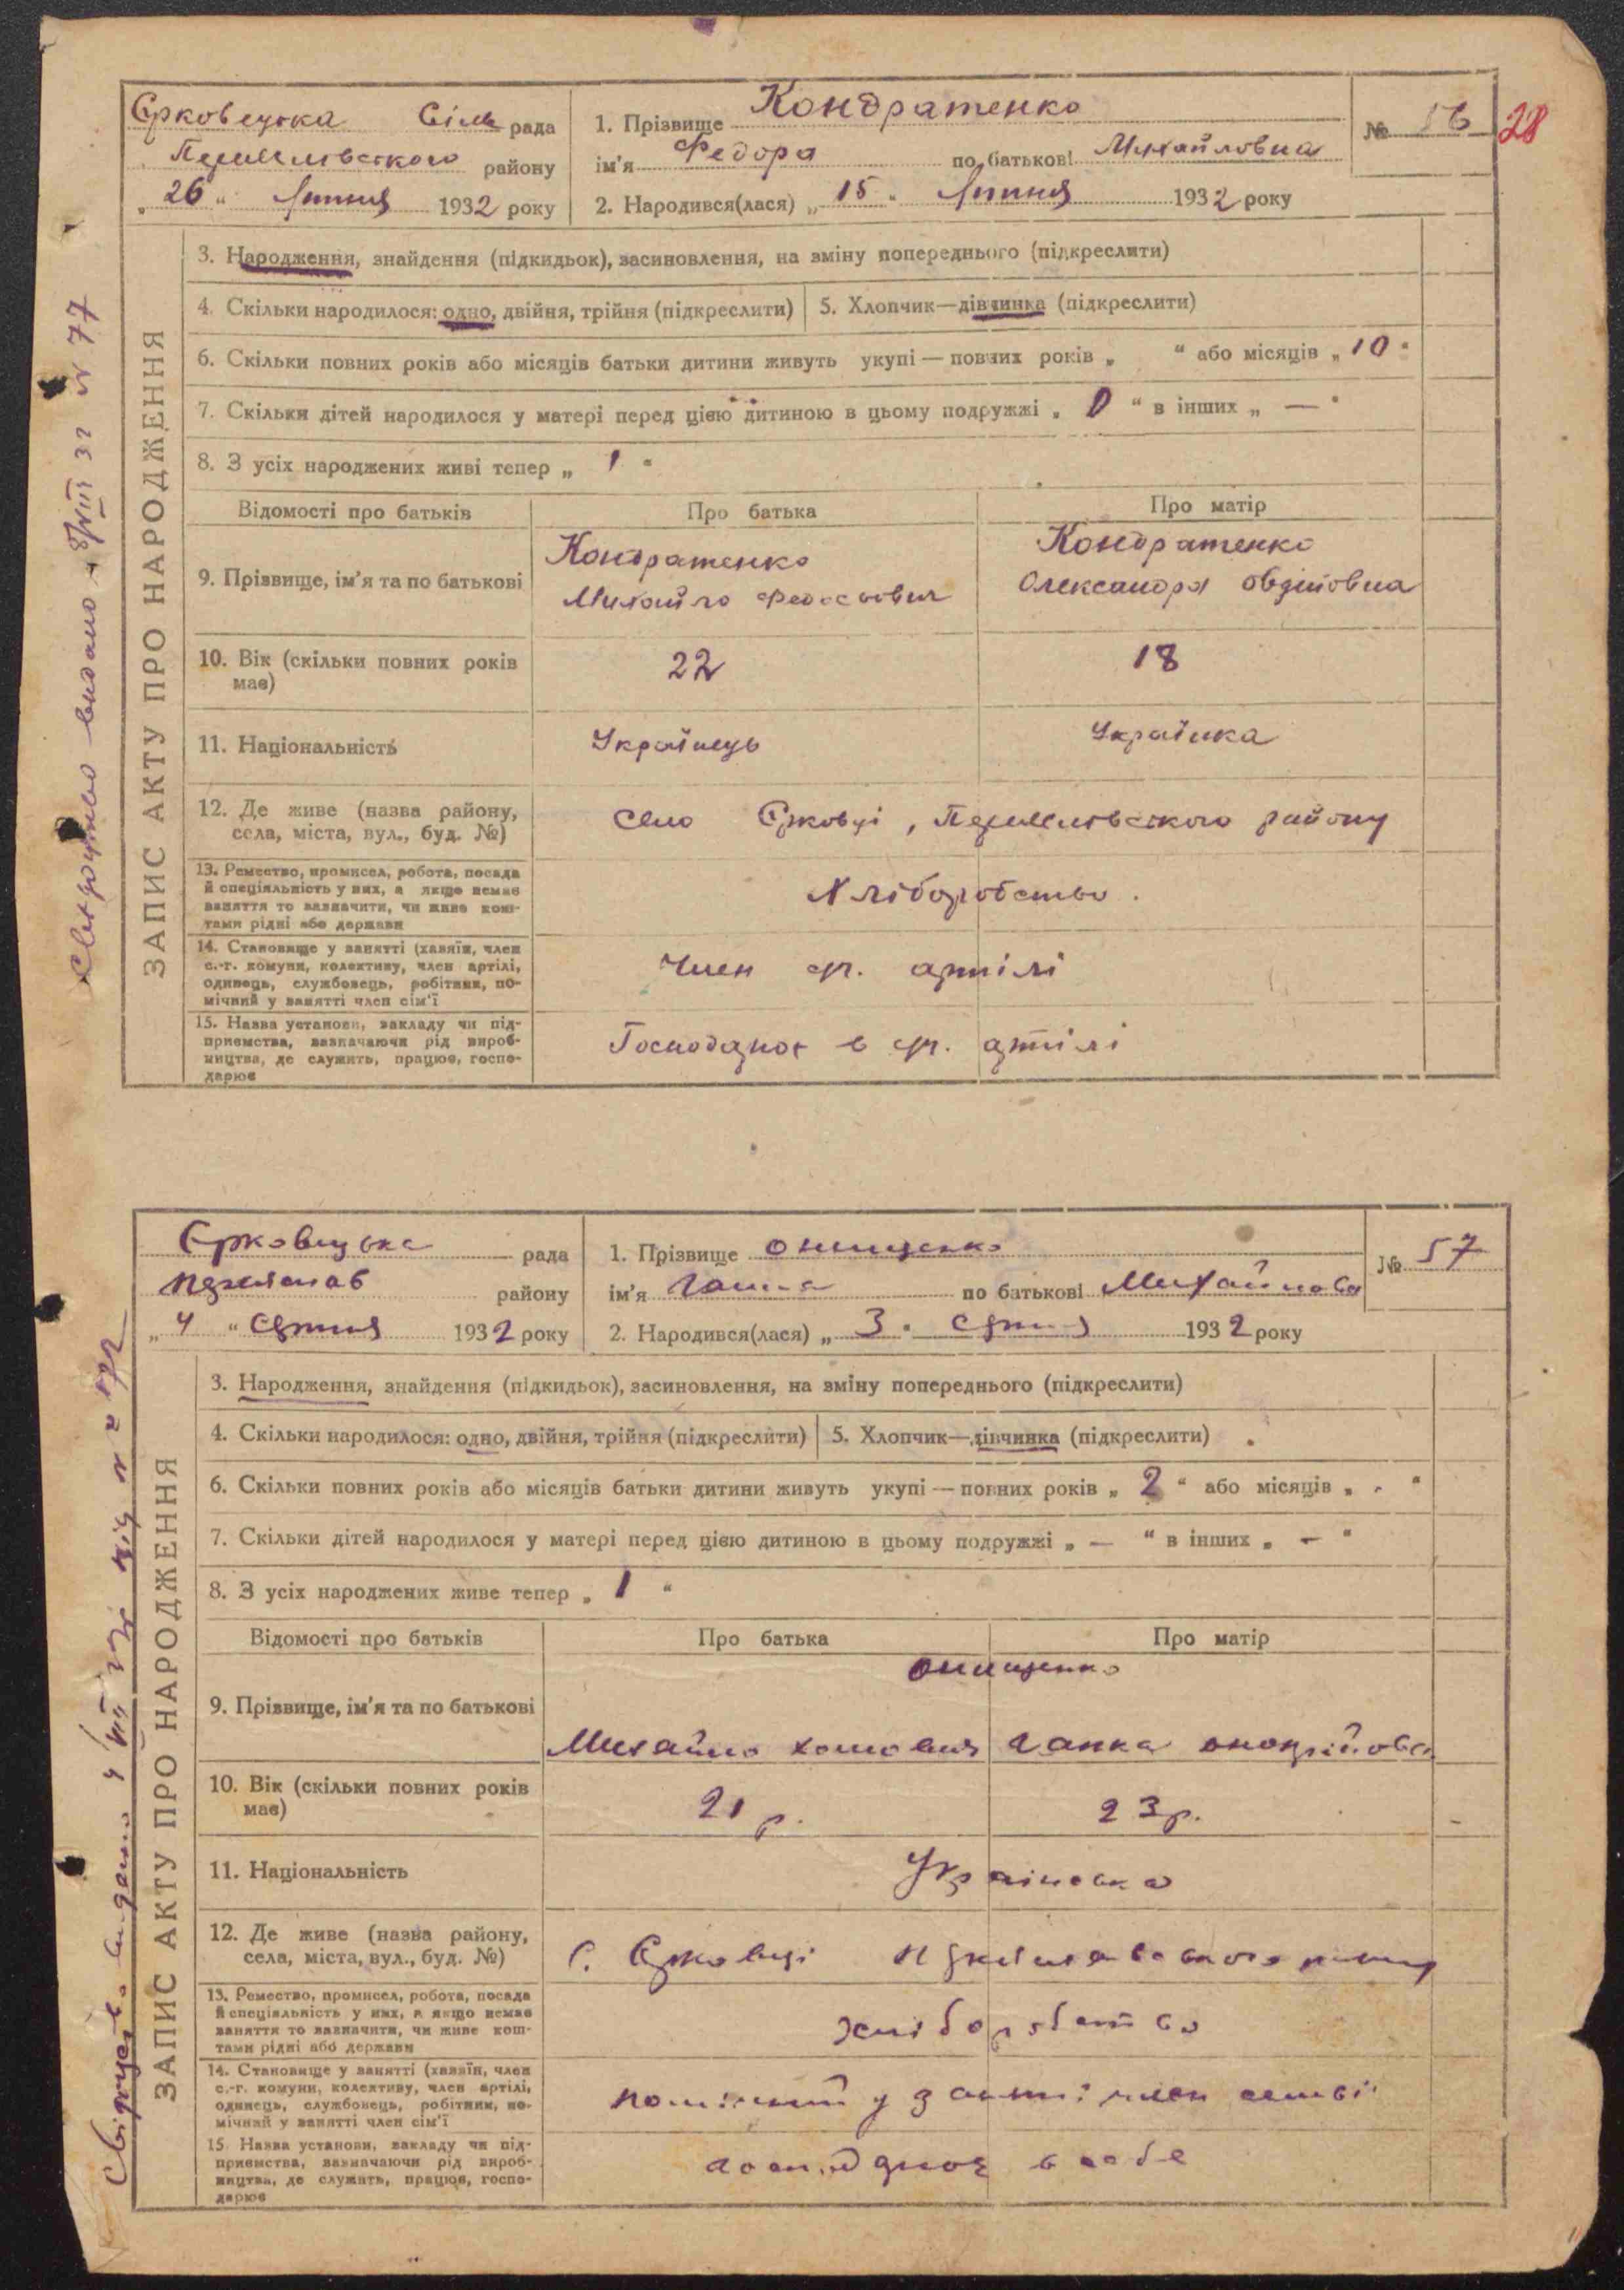 Єрковецька Сільрада
Переяславського району
„26“ Липня 1932 року
1. Прізвище Кондратенко
ім'я Федора по батькові Михайловна
2. Народився(лася) „15“ Липня 1932 року
№ 56
28
ЗАПИС АКТУ ПРО НАРОДЖЕННЯ
3. Народження, знайдення (підкидьок), засиновлення, на зміну попереднього (підкреслити)
4. Скільки народилося: одно, двійня, трійня (підкреслити) 5. Хлопчик—дівчинка (підкреслити)
6. Скільки повних років або місяців батьки дитини живуть укупі — повних років „ “ або місяців „10“
7. Скільки дітей народилося у матері перед цією дитиною в цьому подружжі „0“ в інших „—“
8. З усіх народжених живі тепер „1“
Відомості про батьків Про батька Про матір
9. Прізвище, ім'я та по батькові
Кондратенко
Михайло Федосьович
Кондратенко
Олександра
10. Вік (скільки повних років має) 22 18
11. Національність Українець Українка
12. Де живе (назва району, села, міста, вул., буд. №) село Єрковці, Переяславського району
13. Ремество, промисел, робота, посада
й спеціяльність у них, а якщо немає
заняття то зазначити, чи живе кош-
тами рідні або держави
Хліборобство.
14. Становище у занятті (хазяїн, член
с.-г. комуни, колективу, член артілі,
одинець, службовець, робітник, по-
мічний у занятті член сім'ї
Член с/г. артілі
15. Назва установи, закладу чи під-
приємства, зазначаючи рід вироб-
ництва, де служить, працює, госпо-
дарює
Господарює в с/г. артілі
Свідоцтво видано 8/VIII 32 № 77
Єрковецька рада
Переяслав району
„4“ серпня 1932 року
1. Прізвище Онищенко
ім'я Ганна по батькові Михайлова
2. Народився(лася) „3“ серпня 1932 року
№ 57
ЗАПИС АКТУ ПРО НАРОДЖЕННЯ
3. Народження, знайдення (підкидьок), засиновлення, на зміну попереднього (підкреслити)
4. Скільки народилося: одно, двійня, трійня (підкреслити) 5. Хлопчик—дівчинка (підкреслити)
6. Скільки повних років або місяців батьки дитини живуть укупі — повних років „2“ або місяців „-“
7. Скільки дітей народилося у матері перед цією дитиною в цьому подружжі „—“ в інших „—“
8. З усіх народжених живе тепер „1“
Відомості про батьків Про батька Про матір
Онищенко
9. Прізвище, ім'я та по батькові
Михайло Хомович Ганна Онопрійовна
10. Вік (скільки повних років має) 21 р. 23 р.
11. Національність Українська
12. Де живе (назва району, села, міста, вул., буд. №) С. Єрковці Переяславського району
13. Ремество, промисел, робота, посада
й спеціяльність у них, а якщо немає
заняття то зазначити, чи живе кош-
тами рідні або держави
хліборобство
14. Становище у занятті (хазяїн, член
с.-г. комуни, колективу, член артілі,
одинець, службовець, робітник, по-
мічний у занятті член сім'ї
помічний у занятті член семьї
15. Назва установи, закладу чи під-
приємства, зазначаючи рід вироб-
ництва, де служить, працює, госпо-
дарює
господарює в себе
Свідоцтво видано